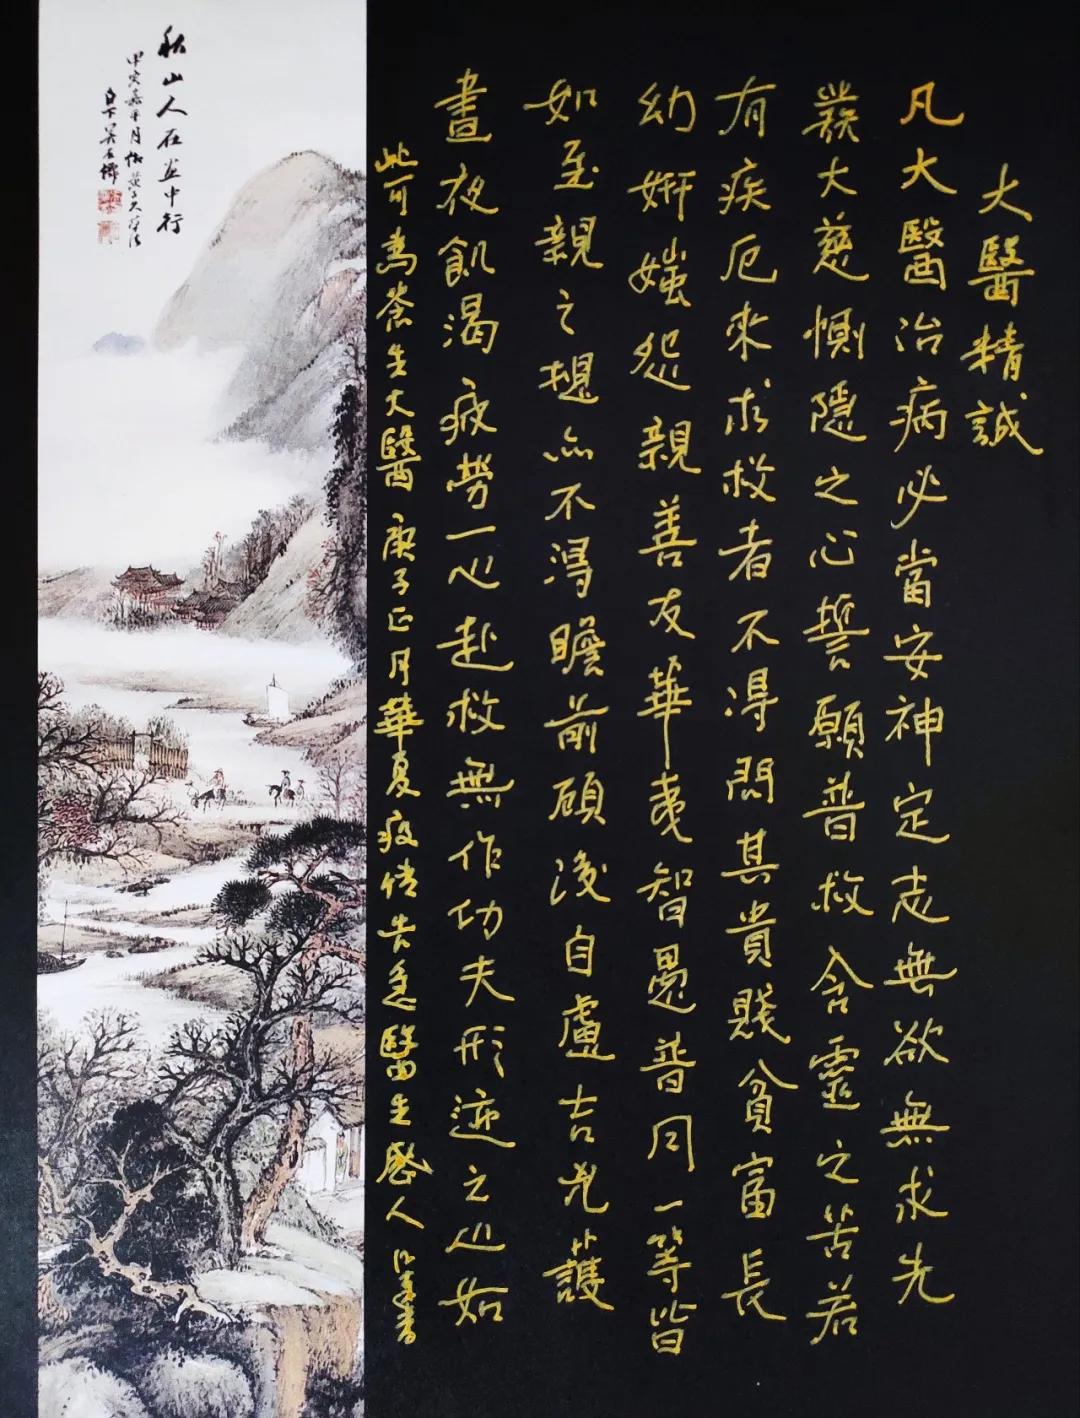 大醫精誠
凡大醫治病必當安神定志無欲無求先
發大慈惻隱之心誓願普救含靈之苦若
有疾厄來求救者不得問其貴賤貧富長
幼妍媸怨親善友華夷智愚普同一等皆
如至親之想亦不得瞻前顧後自慮吉兇護
晝夜飢渴疲勞一心赴救無作功夫形迹之心如
此可為蒼生大醫 庚子正月華夏疫情告急醫生感人 書
秋山人在画中行
甲寅嘉平月 黃子久筆法
白下吳石僊